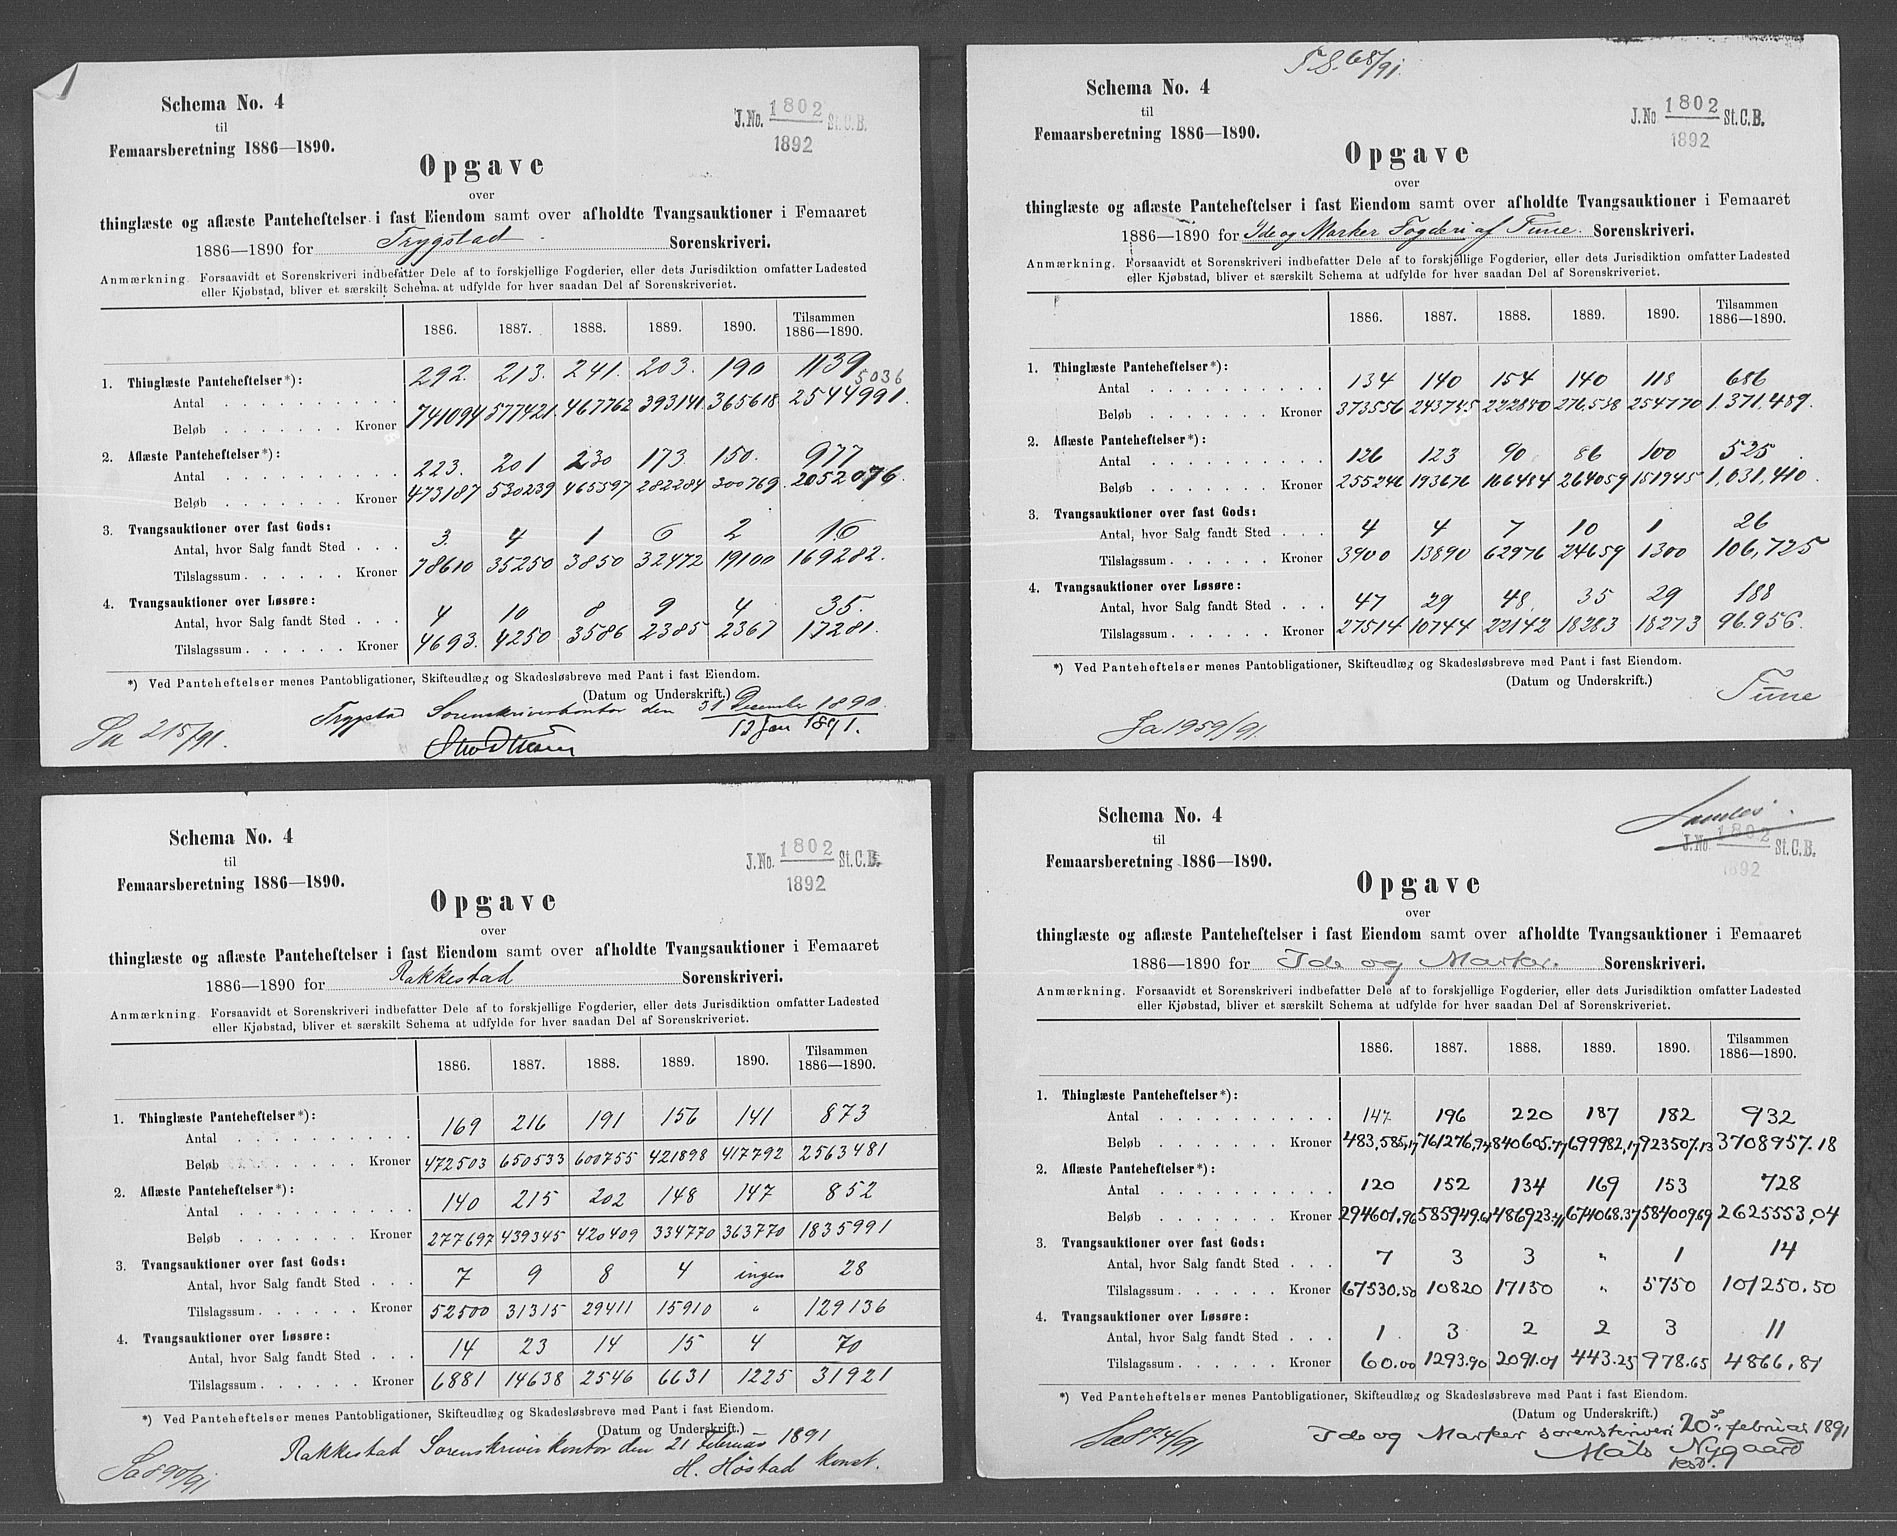 Schema No. 4
til
Femaarsberetning 1886—1890.
J.No. 1802 St.C.B.
1892
Opgave
over
thinglæste og aflæste Panteheftelser i fast Eiendom samt over afholdte Tvangsauktioner i Femaaret
1886—1890 for Trygstad Sorenskriveri.
Anmærkning. Forsaavidt et Sorenskriveri indbefatter Dele af to forskjellige Fogderier, eller dets Jurisdiktion omfatter Ladested
eller Kjøbstad, bliver et særskilt Schema at udfylde for hver saadan Del af Sorenskriveriet.
1886. 1887. 1888. 1889. 1890. Tilsammen 1886—1890.
1. Thinglæste Panteheftelser*):
Antal 292. 213. 241. 203. 190 1139
5036
Beløb Kroner 741094 577421 467762 393141 365618 2544991.
2. Aflæste Panteheftelser*):
Antal 223. 201 230 173. 150. 977
Beløb Kroner 473187 530239 465597 282284 300769. 2052076.
3. Tvangsauktioner over fast Gods:
Antal, hvor Salg fandt Sted 3. 4 1 6 2 16
Tilslagssum Kroner 78610 35250 3850 32472 19100 169282.
4. Tvangsauktioner over Løsøre:
Antal, hvor Salg fandt Sted 4 10 8 9 4 35.
Tilslagssum Kroner 4693. 4250 3586 2385 2367 17281.
*) Ved Panteheftelser menes Pantobligationer, Skifteudlæg og Skadesløsbreve med Pant i fast Eiendom.
(Datum og Underskrift.)
Trygstad Sorenskriverkontor den 31 December 1890.
12 Jan 1891.
Sa 215/91.
F.S. 68/91.
Schema No. 4
til
Femaarsberetning 1886—1890.
J.No 1802 St.C.B.
1892
Opgave
over
thinglæste og aflæste Panteheftelser i fast Eiendom samt over afholdte Tvangsauktioner i Femaaret
1886—1890 for Ide og Marker Fogderi af Tune. Sorenskriveri.
Anmærkning. Forsaavidt et Sorenskriveri indbefatter Dele af to forskjellige Fogderier, eller dets Jurisdiktion omfatter Ladested
eller Kjøbstad, bliver et særskilt Schema at udfylde for hver saadan Del af Sorenskriveriet.
1886. 1887. 1888. 1889. 1890. Tilsammen 1886—1890.
1. Thinglæste Panteheftelser*):
Antal 134 140 154 140 118 686
Beløb Kroner 373556 243745 222880 276,538 254770 1.371,489.
2. Aflæste Panteheftelser*):
Antal 126 123 90 86 100 525
Beløb Kroner 255246 193676 166484 264059 151945 1,031,410
3. Tvangsauktioner over fast Gods:
Antal, hvor Salg fandt Sted 4 4 7 10 1 26
Tilslagssum Kroner 3900 13890 62976 24659 1300 106,725
4. Tvangsauktioner over Løsøre:
Antal, hvor Salg fandt Sted 47 29 48 35 29 188
Tilslagssum Kroner 27514 10744 22142 18283 18273 96.956.
*) Ved Panteheftelser menes Pantobligationer, Skifteudlæg og Skadesløsbreve med Pant i fast Eiendom.
(Datum og Underskrift.)
Tune
Sa 1959/91.
Schema No. 4
til
Femaarsberetning 1886—1890.
J.No. 1802 St.C.B.
1892
Opgave
over
thinglæste og aflæste Panteheftelser i fast Eiendom samt over afholdte Tvangsauktioner i Femaaret
1886—1890 for Rakkestad Sorenskriveri.
Anmærkning. Forsaavidt et Sorenskriveri indbefatter Dele af to forskjellige Fogderier, eller dets Jurisdiktion omfatter Ladested
eller Kjøbstad, bliver et særskilt Schema at udfylde for hver saadan Del af Sorenskriveriet.
1886. 1887. 1888. 1889. 1890. Tilsammen 1886—1890.
1. Thinglæste Panteheftelser*):
Antal 169 216 191 156 141 873
Beløb Kroner 472503 650533 600755 421898 417792 2563481
2. Aflæste Panteheftelser*):
Antal 140 215 202 148 147 852
Beløb Kroner 277697 439345 420409 334770 363770 1835991
3. Tvangsauktioner over fast Gods:
Antal, hvor Salg fandt Sted 7 9 8 4 ingen 28
Tilslagssum Kroner 52500 31315 29411 15910 " 129136
4. Tvangsauktioner over Løsøre:
Antal, hvor Salg fandt Sted 14 23 14 15 4 70
Tilslagssum Kroner 6881 14638 2546 6631 1225 31921
*) Ved Panteheftelser menes Pantobligationer, Skifteudlæg og Skadesløsbreve med Pant i fast Eiendom.
(Datum og Underskrift.)
Rakkestad Sorenskriverkontor den 21 Februar 1891
H. Høstad konst.
Sa 890/91
Schema No. 4
til
Femaarsberetning 1886—1890.
J.No. 1802 St.C.B.
1892
Opgave
over
thinglæste og aflæste Panteheftelser i fast Eiendom samt over afholdte Tvangsauktioner i Femaaret
1886—1890 for Ide og Marker. Sorenskriveri.
Anmærkning. Forsaavidt et Sorenskriveri indbefatter Dele af to forskjellige Fogderier, eller dets Jurisdiktion omfatter Ladested
eller Kjøbstad, bliver et særskilt Schema at udfylde for hver saadan Del af Sorenskriveriet.
1886. 1887. 1888. 1889. 1890. Tilsammen 1886—1890.
1. Thinglæste Panteheftelser*):
Antal 147. 196 220 187 182 932
Beløb Kroner 483,585,17 761276,94 840605.77 699982,17 923507.13 3708957.18
2. Aflæste Panteheftelser*):
Antal 120 152 134 169 153 728
Beløb Kroner 294601.96 585949.61 486923.41 674068.37 584009.69 2625553,04
3. Tvangsauktioner over fast Gods:
Antal, hvor Salg fandt Sted 7 3 3 " 1 14
Tilslagssum Kroner 67530.50 10820 17150 " 5750 101250.50
4. Tvangsauktioner over Løsøre:
Antal, hvor Salg fandt Sted 1 3 2 2 3 11
Tilslagssum Kroner 60.00 1293.90 2091.01 443.25 978.65 4866,81
*) Ved Panteheftelser menes Pantobligationer, Skifteudlæg og Skadesløsbreve med Pant i fast Eiendom.
(Datum og Underskrift.)
Ide og Marker sorenskriveri 20de februar 1891
Mats Nygaard
kst.
Sa 874/91